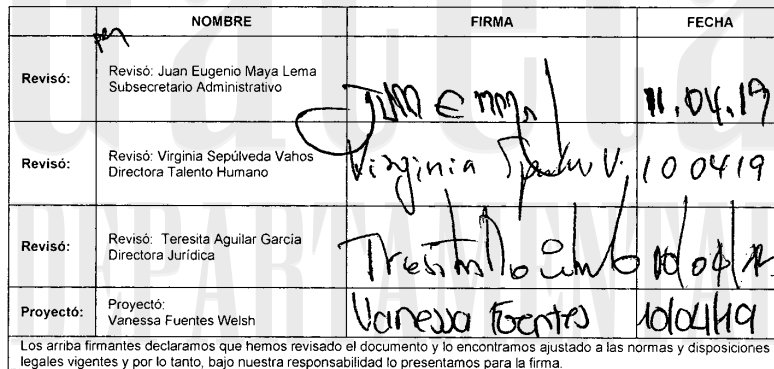 NOMBRE FIRMA FECHA
Revisó: Revisó: Juan Eugenio Maya Lema
Subsecretario Administrativo
11.04.19
Revisó: Revisó: Virginia Sepúlveda Vahos
Directora Talento Humano
Virginia V. 100419
Revisó: Revisó: Teresita Aguilar García
Directora Jurídica
Proyectó: Proyectó:
Vanessa Fuentes Welsh
Vanessa Fuentes 10/04/19
Los arriba firmantes declaramos que hemos revisado el documento y lo encontramos ajustado a las normas y disposiciones
legales vigentes y por lo tanto, bajo nuestra responsabilidad lo presentamos para la firma.